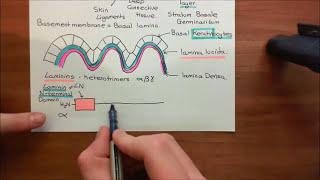 Deep
Connective
tissue.
Skin
Ligaments
layer
Stratum Basale
Germinarium
Basement membrane = Basal lamina.
Basal Keratinocytes
lamina lucida.
Laminins - heterotrimers αβγ
lamina Densa.
Laminin LN
N-terminal
Domain
H₂N
α